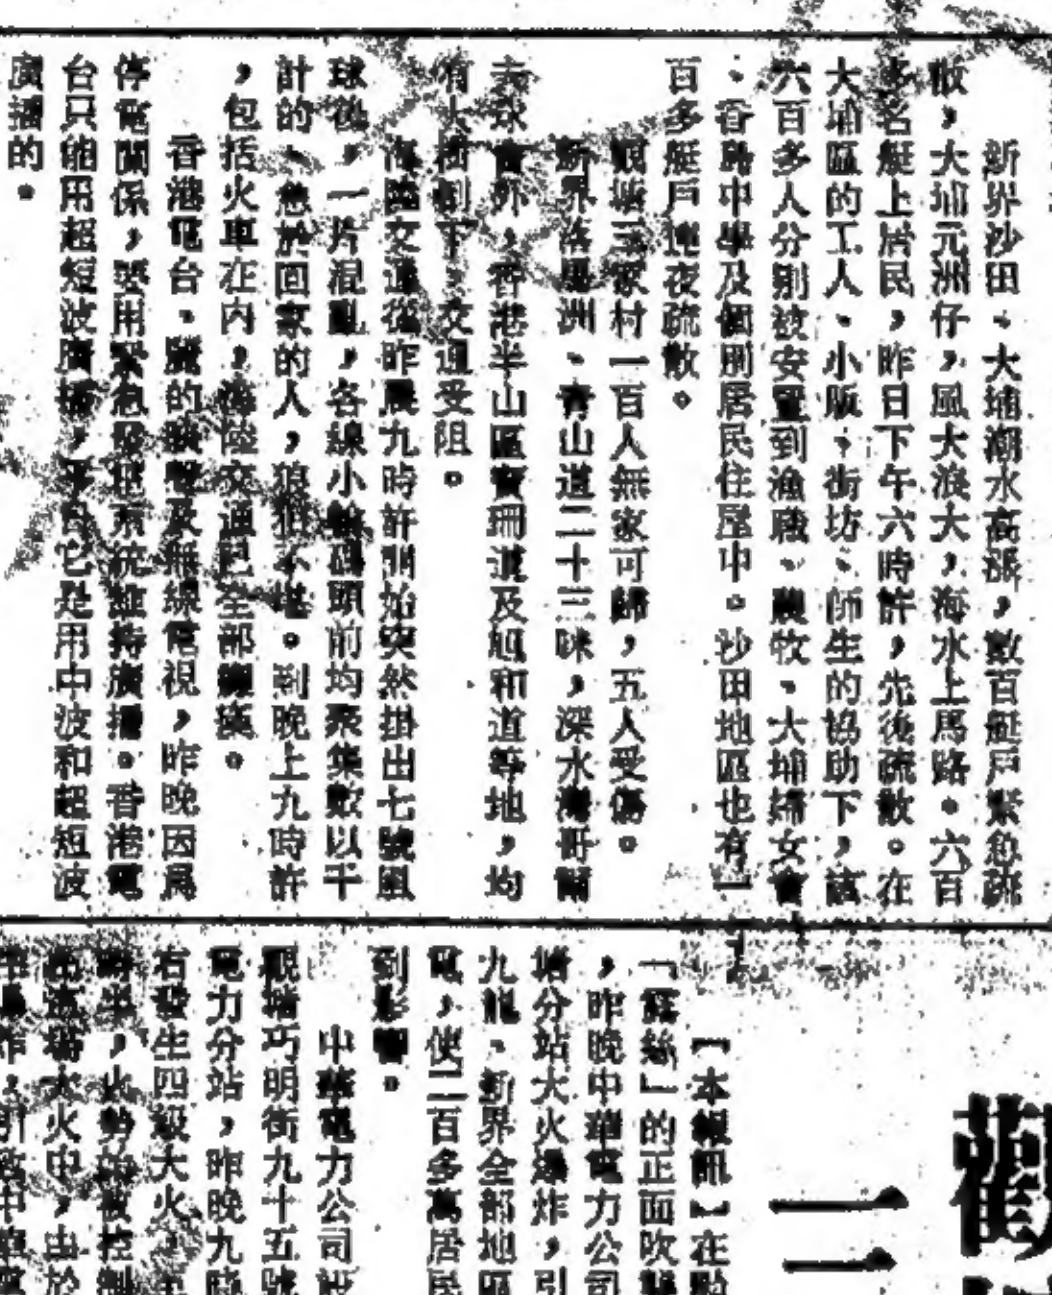 新界沙田、大埔潮水高漲，數百艇戶緊急疏
散，大埔元洲仔，風大浪大，海水上馬路。六百
多名艇上居民，昨日下午六時許，先後疏散。在
大埔區的工人、小販、街坊、師生的協助下，該
六百多人分別被安置到漁職、農牧、大埔婦女會
、香島中學及個別居民住屋中。沙田地區也有一
百多艇戶連夜疏散。
觀塘三家村一百人無家可歸，五人受傷。
新界落馬洲、青山道二十三咪，深水灣哥爾
夫球會外，香港半山區寶珊道及旭和道等地，均
有大樹倒下，交通受阻。
海陸交通從昨晨九時許開始突然掛出七號風
球後，一片混亂，各線小輪碼頭前均聚集數以千
計的、急於回家的人，狼狽不堪。到晚上九時許
，包括火車在內，海陸交通已全部癱瘓。
香港電台、麗的映聲及無線電視，昨晚因局
停電關係，要用緊急發電系統維持廣播。香港電
台只能用超短波廣播，平日它是用中波和超短波
廣播的。
觀
二
【本報訊】在
「露絲」的正面吹襲
，昨晚中華電力公司
塘分站大火爆炸，引
九龍、新界全部地區
電，使二百多萬居民
到影響。
中華電力公司設
觀塘巧明街九十五號
電力分站，昨晚九時
右發生四級大火，
時半，火勢始被控制
在這場大火中，由於
引致中華電